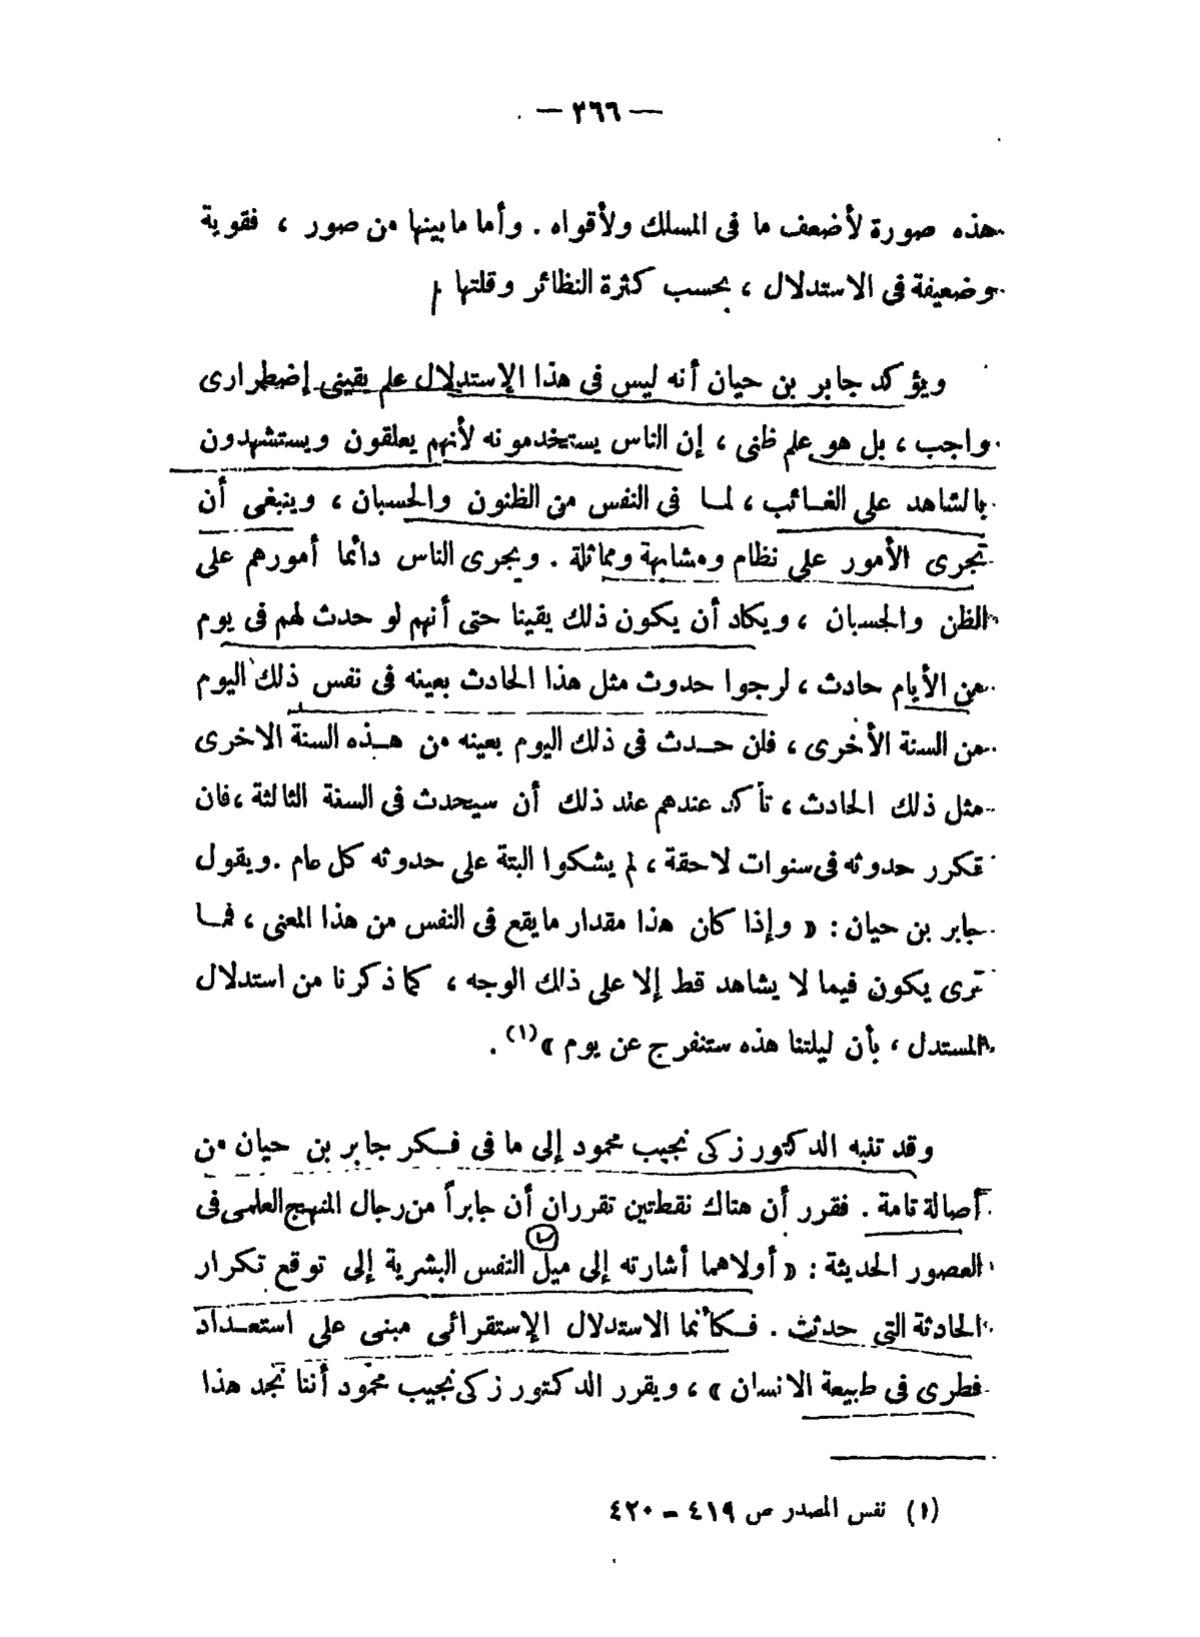 — ٣٦٦ —
هذه صورة لأضعف ما فى المسلك ولأقواه . وأما ما بينها من صور ، فقوية
وضعيفة فى الاستدلال ، بحسب كثرة النظائر وقلتها
ويؤكد جابر بن حيان أنه ليس فى هذا الإستدلال علم يقينى إضطرارى
واجب ، بل هو علم ظنى ، إن الناس يستخدمونه لأنهم يعلقون ويستشهدون
بالشاهد على الغائب ، لما فى النفس من الظنون والحسبان ، وينبغى أن
تجرى الأمور على نظام ومشابهة ومماثلة . ويجرى الناس دائما أمورهم على
الظن والحسبان ، ويكاد أن يكون ذلك يقينا حتى أنهم لو حدث لهم فى يوم
من الأيام حادث ، لرجوا حدوث مثل هذا الحادث بعينه فى نفس ذلك اليوم
من السنة الأخرى ، فان حدث فى ذلك اليوم بعينه من هذه السنة الاخرى
مثل ذلك الحادث ، تأكد عندهم عند ذلك أن سيحدث فى السنة الثالثة ، فان
تكرر حدوثه فى سنوات لاحقة ، لم يشكوا البتة على حدوثه كل عام . ويقول
جابر بن حيان : « وإذا كان هذا مقدار ما يقع فى النفس من هذا المعنى ، فما
ترى يكون فيما لا يشاهد قط إلا على ذلك الوجه ، كما ذكرنا من استدلال
المستدل ، بأن ليلتنا هذه ستنفرج عن يوم » (١) .
وقد تنبه الدكتور زكى نجيب محمود إلى ما فى فكر جابر بن حيان من
أصالة تامة . فقرر أن هناك نقطتين تقرران أن جابراً من رجال المنهج العلمى فى
العصور الحديثة : « أولاهما أشارته إلى ميل النفس البشرية إلى توقع تكرار
الحادثة التى حدثت . فكأنما الاستدلال الإستقرائى مبنى على استعداد
فطرى فى طبيعة الانسان » ، ويقرر الدكتور زكى نجيب محمود أننا نجد هذا
(١) نفس المصدر ص ٤١٩ – ٤٢٠